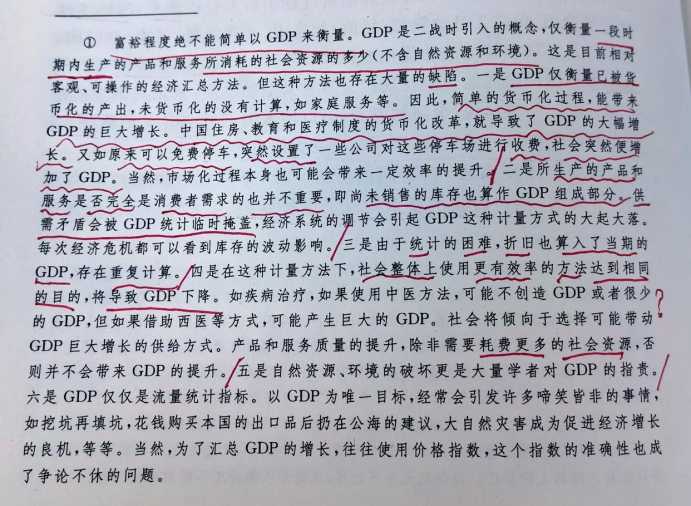 ① 富裕程度绝不能简单以 GDP 来衡量。GDP 是二战时引入的概念,仅衡量一段时
期内生产的产品和服务所消耗的社会资源的多少(不含自然资源和环境)。这是目前相对
客观、可操作的经济汇总方法。但这种方法也存在大量的缺陷。一是 GDP 仅衡量已被货
币化的产出,未货币化的没有计算,如家庭服务等。因此,简单的货币化过程,能带来
GDP 的巨大增长。中国住房、教育和医疗制度的货币化改革,就导致了 GDP 的大幅增
长。又如原来可以免费停车,突然设置了一些公司对这些停车场进行收费,社会突然便增
加了 GDP。当然,市场化过程本身也可能会带来一定效率的提升。二是所生产的产品和
服务是否完全是消费者需求的也并不重要,即尚未销售的库存也算作 GDP 组成部分。供
需矛盾会被 GDP 统计临时掩盖,经济系统的调节会引起 GDP 这种计量方式的大起大落。
每次经济危机都可以看到库存的波动影响。三是由于统计的困难,折旧也算入了当期的
GDP,存在重复计算。四是在这种计量方法下,社会整体上使用更有效率的方法达到相同
的目的,将导致 GDP 下降。如疾病治疗,如果使用中医方法,可能不创造 GDP 或者很少
的 GDP,但如果借助西医等方式,可能产生巨大的 GDP。社会将倾向于选择可能带动
GDP 巨大增长的供给方式。产品和服务质量的提升,除非需要耗费更多的社会资源,否
则并不会带来 GDP 的提升。五是自然资源、环境的破坏更是大量学者对 GDP 的指责。
六是 GDP 仅仅是流量统计指标。以 GDP 为唯一目标,经常会引发许多啼笑皆非的事情,
如挖坑再填坑,花钱购买本国的出口品后扔在公海的建议,大自然灾害成为促进经济增长
的良机,等等。当然,为了汇总 GDP 的增长,往往使用价格指数,这个指数的准确性也成
了争论不休的问题。
?